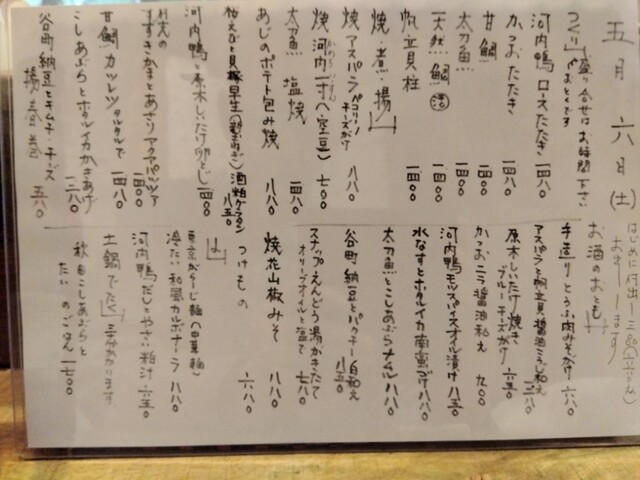 五月六日(土)
つくり 盛り合せはお時間下さい
河内鴨ロースたたき 一四八〇
かつおたたき 一四八〇
甘鯛 一四八〇
太刀魚 一四〇〇
天然鯛 活 一四〇〇
帆立貝柱 一四〇〇
焼・煮・揚
焼アスパラ ペコリーノチーズがけ 八八〇
焼河内一寸(空豆) 七〇〇
太刀魚 塩焼 一四八〇
あじのポテト包み焼 八八〇
河内鴨と原木しいたけ卵とじ 一四〇〇
すずきかまとあさりアクアパッツァ
甘鯛カツレツタルタルで 一四八〇
こしあぶらとホタルイカかきあげ 一二八〇
谷町納豆とキムチ・チーズ 揚春巻 五八〇
お酒のおとも
手造りとうふ肉みそがけ 六八〇
アスパラと帆立貝醤油こうじ和え
原木しいたけ焼き ブルーチーズがけ 六五〇
かつおニラ醤油和え 九〇〇
河内鴨モツスパイスオイル漬け 八五〇
水なすとホタルイカ南蛮づけ 八八〇
太刀魚とこしあぶらナムル 八八〇
谷町納豆とパクチー白和え 八五〇
スナップえんどう湯がきたて オリーブオイルと塩で 七八〇
焼花山椒みそ 八八〇
つけもの 六八〇
〆
東京がらーじ麺(中華麺)
冷たい和風カルボナーラ 八八〇
河内鴨だしとやさい粕汁 六五〇
土鍋でたく
秋田こしあぶらと
たい のごはん 一七〇〇